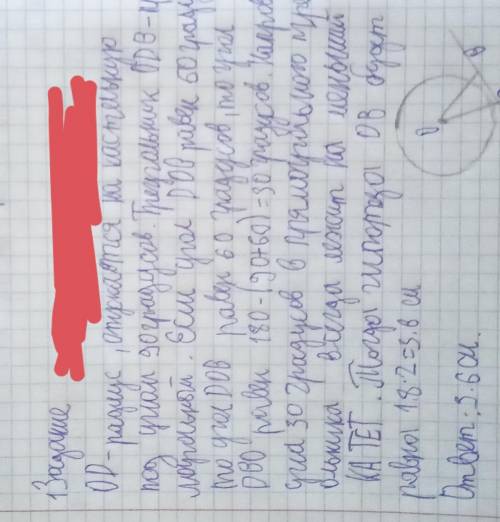 1 Задание
OD-радиус, опускается на касательную
под углом 90 градусов. Треугольник ODB-
Если угол DOB равен 60
то угол DOB равен 60 градусов, то угол
DBO равен 180-(90+60)=30 градусов.
угла 30 градусов в прямоугольного
всегда лежит на меньший
КАТЕТ. Тогда гипотеза OB будет
равна 1.8·2=3.6 см
Ответ: 3.6 см.
O
B